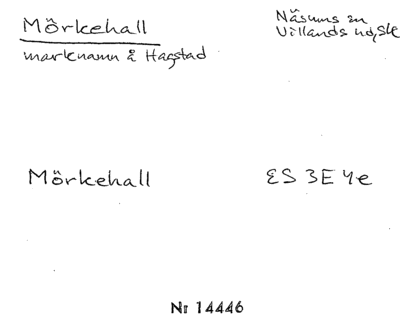 Mörkehall
Näsums sn
Villands hd, Sk
marknamn å Hagstad
Mörkehall
ES 3E 4e
Nr 14446